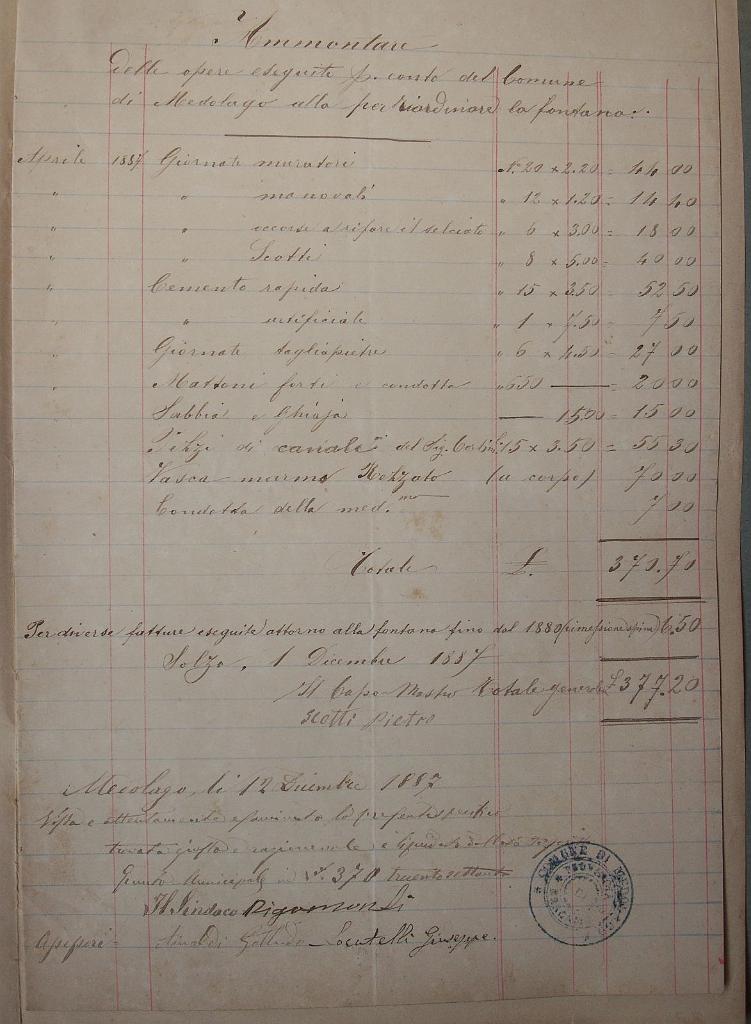 Ammontare
delle opere eseguite p. conto del Comune
di Medolago alla per riordinare la fontana:
Aprile 1887 Giornate muratori N.º 20 × 2.20 = 44 00
" " manovali " 12 × 1.20 = 14 40
" " occorse a rifare il selciato " 6 × 3.00 = 18 00
" " Scotti " 8 × 5.00 = 40 00
" Cemento rapida " 15 × 3.50 = 52 50
" " artificiale " 1 × 7.50 = 7 50
" Giornate tagliapietre " 6 × 4.50 = 27 00
" Mattoni forti e condotta " 550 — = 20 00
Sabbia e Ghiaja — 15.00 = 15 00
di canale del Sig. 15 × 3.50 = 55 30
Vasca marmo Rezzato (a corpo) 70 00
Condotta della med.ma 7 00
Totale £. 370.70
Per diverse fatture eseguite attorno alla fontana fino dal 1880 6.50
Solza, 1 Dicembre 1887
Il Capo-Mastro Totale generale £ 377.20
Scotti Pietro
Medolago, li 12 Dicembre 1887
Vista e attentamente esaminata la presente
trovata giusta e ragionevole e liquidata dalla
Giunta Municipale in 370 trecentosettanta
Il Sindaco Rigamonti
Assessori = Locatelli Giuseppe.
COMUNE DI MEDOLAGO